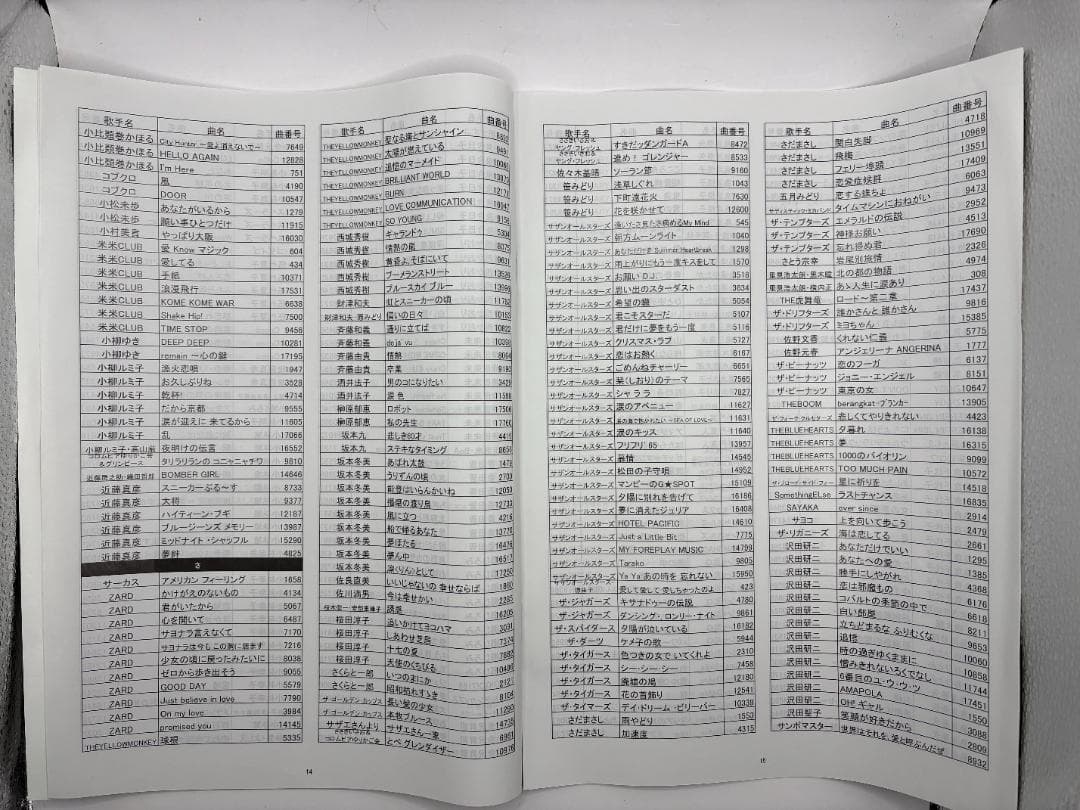 歌手名 曲名 曲番号
小比類巻かほる City Hunter ～愛よ消えないで～ 7649
小比類巻かほる HELLO AGAIN 12828
小比類巻かほる I'm Here 751
コブクロ 風 4190
コブクロ DOOR 10547
小松未歩 あなたがいるから 1279
小松未歩 願い事ひとつだけ 11915
小村美貴 やっぱり大阪 16030
米米CLUB 愛 Know マジック 604
米米CLUB 愛してる 434
米米CLUB 手紙 10371
米米CLUB 浪漫飛行 17531
米米CLUB KOME KOME WAR 6638
米米CLUB Shake Hip! 7500
米米CLUB TIME STOP 9456
小柳ゆき DEEP DEEP 10281
小柳ゆき remain ～心の鍵 17195
小柳ルミ子 漁火恋唄 1947
小柳ルミ子 お久しぶりね 3528
小柳ルミ子 乾杯! 4714
小柳ルミ子 だから京都 9555
小柳ルミ子 涙が迎えに 来てるから 11605
小柳ルミ子 乱 17066
小柳ルミ子・ 夜明けの伝言 16552
タリラリランの コニャニャチワ 9810
BOMBER GIRL 14646
近藤真彦 スニーカーぶる～す 8733
近藤真彦 大将 9377
近藤真彦 ハイティーン・ブギ 12187
近藤真彦 ブルージーンズ メモリー 13987
近藤真彦 ミッドナイト・シャッフル 15290
近藤真彦 夢絆 4825
さ
サーカス アメリカン フィーリング 1658
ZARD かけがえのないもの 4134
ZARD 君がいたから 5067
ZARD 心を開いて 6487
ZARD サヨナラ言えなくて 7170
ZARD サヨナラは今もこの胸に居ます 7216
ZARD 少女の頃に戻ったみたいに 8038
ZARD ゼロから歩き出そう 9055
ZARD GOOD DAY 5579
ZARD Just believe in love 7790
ZARD On my love 3984
ZARD promised you 14145
THEYELLOWMONKEY 球根 5335
14
歌手名 曲名 曲番号
THEYELLOWMONKEY 聖なる海とサンシャイン
THEYELLOWMONKEY 太陽が燃えている
THEYELLOWMONKEY 追憶のマーメイド
THEYELLOWMONKEY BRILLIANT WORLD
THEYELLOWMONKEY BURN
THEYELLOWMONKEY LOVE COMMUNICATION
THEYELLOWMONKEY SO YOUNG
西城秀樹 ギャランドゥ
西城秀樹 情熱の嵐
西城秀樹 黄昏よ、そばにいて
西城秀樹 ブーメランストリート
西城秀樹 ブルースカイ ブルー
財津和夫 虹とスニーカーの頃
償いの日々
斉藤和義 歩いて 通りに立てば
斉藤和義 deja vu
斉藤由貴 情熱
斉藤由貴 卒業
酒井法子 男のコになりたい
酒井法子 涙色
榊原郁恵 ロボット
榊原郁恵 私の先生
坂本九 悲しき60才
坂本九 ステキなタイミング
坂本冬美 あばれ太鼓
坂本冬美 うりずんの頃
坂本冬美 能登はいらんかいね
坂本冬美 播磨の渡り鳥
坂本冬美 風に立つ
坂本冬美 船で帰るあなた
坂本冬美 夢ほたる
坂本冬美 夢ん中
坂本冬美 凛(りん)として
佐良直美 いいじゃないの 幸せならば
佐川満男 今は幸せかい
誘惑
桜田淳子 追いかけてヨコハマ
桜田淳子 しあわせ芝居
桜田淳子 十七の夏
桜田淳子 天使のくちびる
さくらと一郎 いつのまにか
さくらと一郎 昭和枯れすゝき
ザ・ゴールデン・カップス 長い髪の少女
ザ・ゴールデン・カップス 本牧ブルース
サザエさんより サザエさん一家
とべ グレンダイザー
歌手名 曲名 曲番号
すきだッダンガードA 8472
進め! ゴレンジャー 8533
佐々木基晴 ソーラン節 9160
笹みどり 浅草しぐれ 1043
笹みどり 下町遠花火 7630
笹みどり 花を咲かせて 12600
サザンオールスターズ 逢いたさ見たさ病めるMy Mind 545
サザンオールスターズ 朝方ムーンライト 1040
サザンオールスターズ あなただけを Summer Heartbreak 1298
サザンオールスターズ 雨上がりにもう一度キスをして 1570
サザンオールスターズ お願い D.J. 3518
サザンオールスターズ 思い出のスターダスト 3634
サザンオールスターズ 希望の轍 5054
サザンオールスターズ 君こそスターだ 5107
サザンオールスターズ 君だけに夢をもう一度 5116
サザンオールスターズ クリスマス・ラブ 5727
サザンオールスターズ 恋はお熱く 6167
サザンオールスターズ ごめんねチャーリー 6651
サザンオールスターズ 栞(しおり)のテーマ 7565
サザンオールスターズ シャララ 7827
サザンオールスターズ 涙のアベニュー 11627
サザンオールスターズ 涙の海で抱かれたい ～SEA OF LOVE～ 11631
サザンオールスターズ 涙のキッス 11640
サザンオールスターズ フリフリ '65 13957
サザンオールスターズ 慕情 14545
サザンオールスターズ 松田の子守唄 14952
サザンオールスターズ マンピーのG★SPOT 15109
サザンオールスターズ 夕陽に別れを告げて 16186
サザンオールスターズ 夢に消えたジュリア 16408
サザンオールスターズ HOTEL PACIFIC 14610
サザンオールスターズ Just a Little Bit 7775
サザンオールスターズ MY FOREPLAY MUSIC 14799
サザンオールスターズ Tarako 9805
サザンオールスターズ Ya Ya あの時を 忘れない 15950
愛して愛して 愛しちゃったのよ 423
ザ・ジャガーズ キサナドゥーの伝説 4780
ザ・ジャガーズ ダンシング・ロンリー・ナイト 9861
ザ・スパイダース 夕陽が泣いている 16182
ザ・ダーツ ケメ子の歌 5944
ザ・タイガース 色つきの女でいてくれよ 2310
ザ・タイガース シー・シー・シー 7458
ザ・タイガース 廃墟の鳩 12180
ザ・タイガース 花の首飾り 12541
ザ・タイマーズ デイ・ドリーム・ビリーバー 10338
さだまさし 雨やどり 1550
さだまさし 加速度 4315
歌手名 曲名 曲番号
さだまさし 関白失脚 4718
さだまさし 飛梅 10969
さだまさし フェリー埠頭 13551
さだまさし 恋愛症候群 17409
五月みどり 恋する蝶ちょ 6063
タイムマシンにおねがい 9473
ザ・テンプターズ エメラルドの伝説 2952
ザ・テンプターズ 神様お願い 4513
ザ・テンプターズ 忘れ得ぬ君 17690
さとう宗幸 岩尾別旅情 2326
北の都の物語 4974
あゝ思い出に涙あり 308
THE虎舞竜 ロード～第二章 17437
ザ・ドリフターズ 誰かさんと 誰かさん 9816
ザ・ドリフターズ ミヨちゃん 15385
佐野文香 くれない仁義 5775
佐野元春 アンジェリーナ ANGERINA 1777
ザ・ピーナッツ 恋のフーガ 6137
ザ・ピーナッツ ジョニー・エンジェル 8151
ザ・ピーナッツ 東京の女 10647
THEBOOM berangkat-ブランカ- 13905
ザ・フォーク・クルセダーズ 悲しくてやりきれない 4423
THEBLUEHEARTS 夕暮れ 16138
THEBLUEHEARTS 夢 16315
THEBLUEHEARTS 1000のバイオリン 9099
THEBLUEHEARTS TOO MUCH PAIN 10572
星に祈りを 14518
SomethingELse ラストチャンス 16835
SAYAKA ever since 2914
サヨコ 上を向いて歩こう 2479
ザ・リガニーズ 海は恋してる 2661
沢田研二 あなただけでいい 1295
沢田研二 あなたへの愛 1385
沢田研二 勝手にしやがれ 4368
沢田研二 恋は邪魔もの 6176
沢田研二 コバルトの季節の中で 6618
沢田研二 白い部屋 8211
沢田研二 立ちどまるな ふりむくな 9653
沢田研二 追憶 10060
沢田研二 時の過ぎゆくままに 10858
沢田研二 憎みきれないろくでなし 11744
沢田研二 6番目のユ・ウ・ウ・ツ 17451
沢田研二 AMAPOLA 1550
沢田研二 OH!ギャル 3088
沢田聖子 笑顔が好きだから 2809
サンボマスター 世界はそれを、愛と呼ぶんだぜ 8932
15